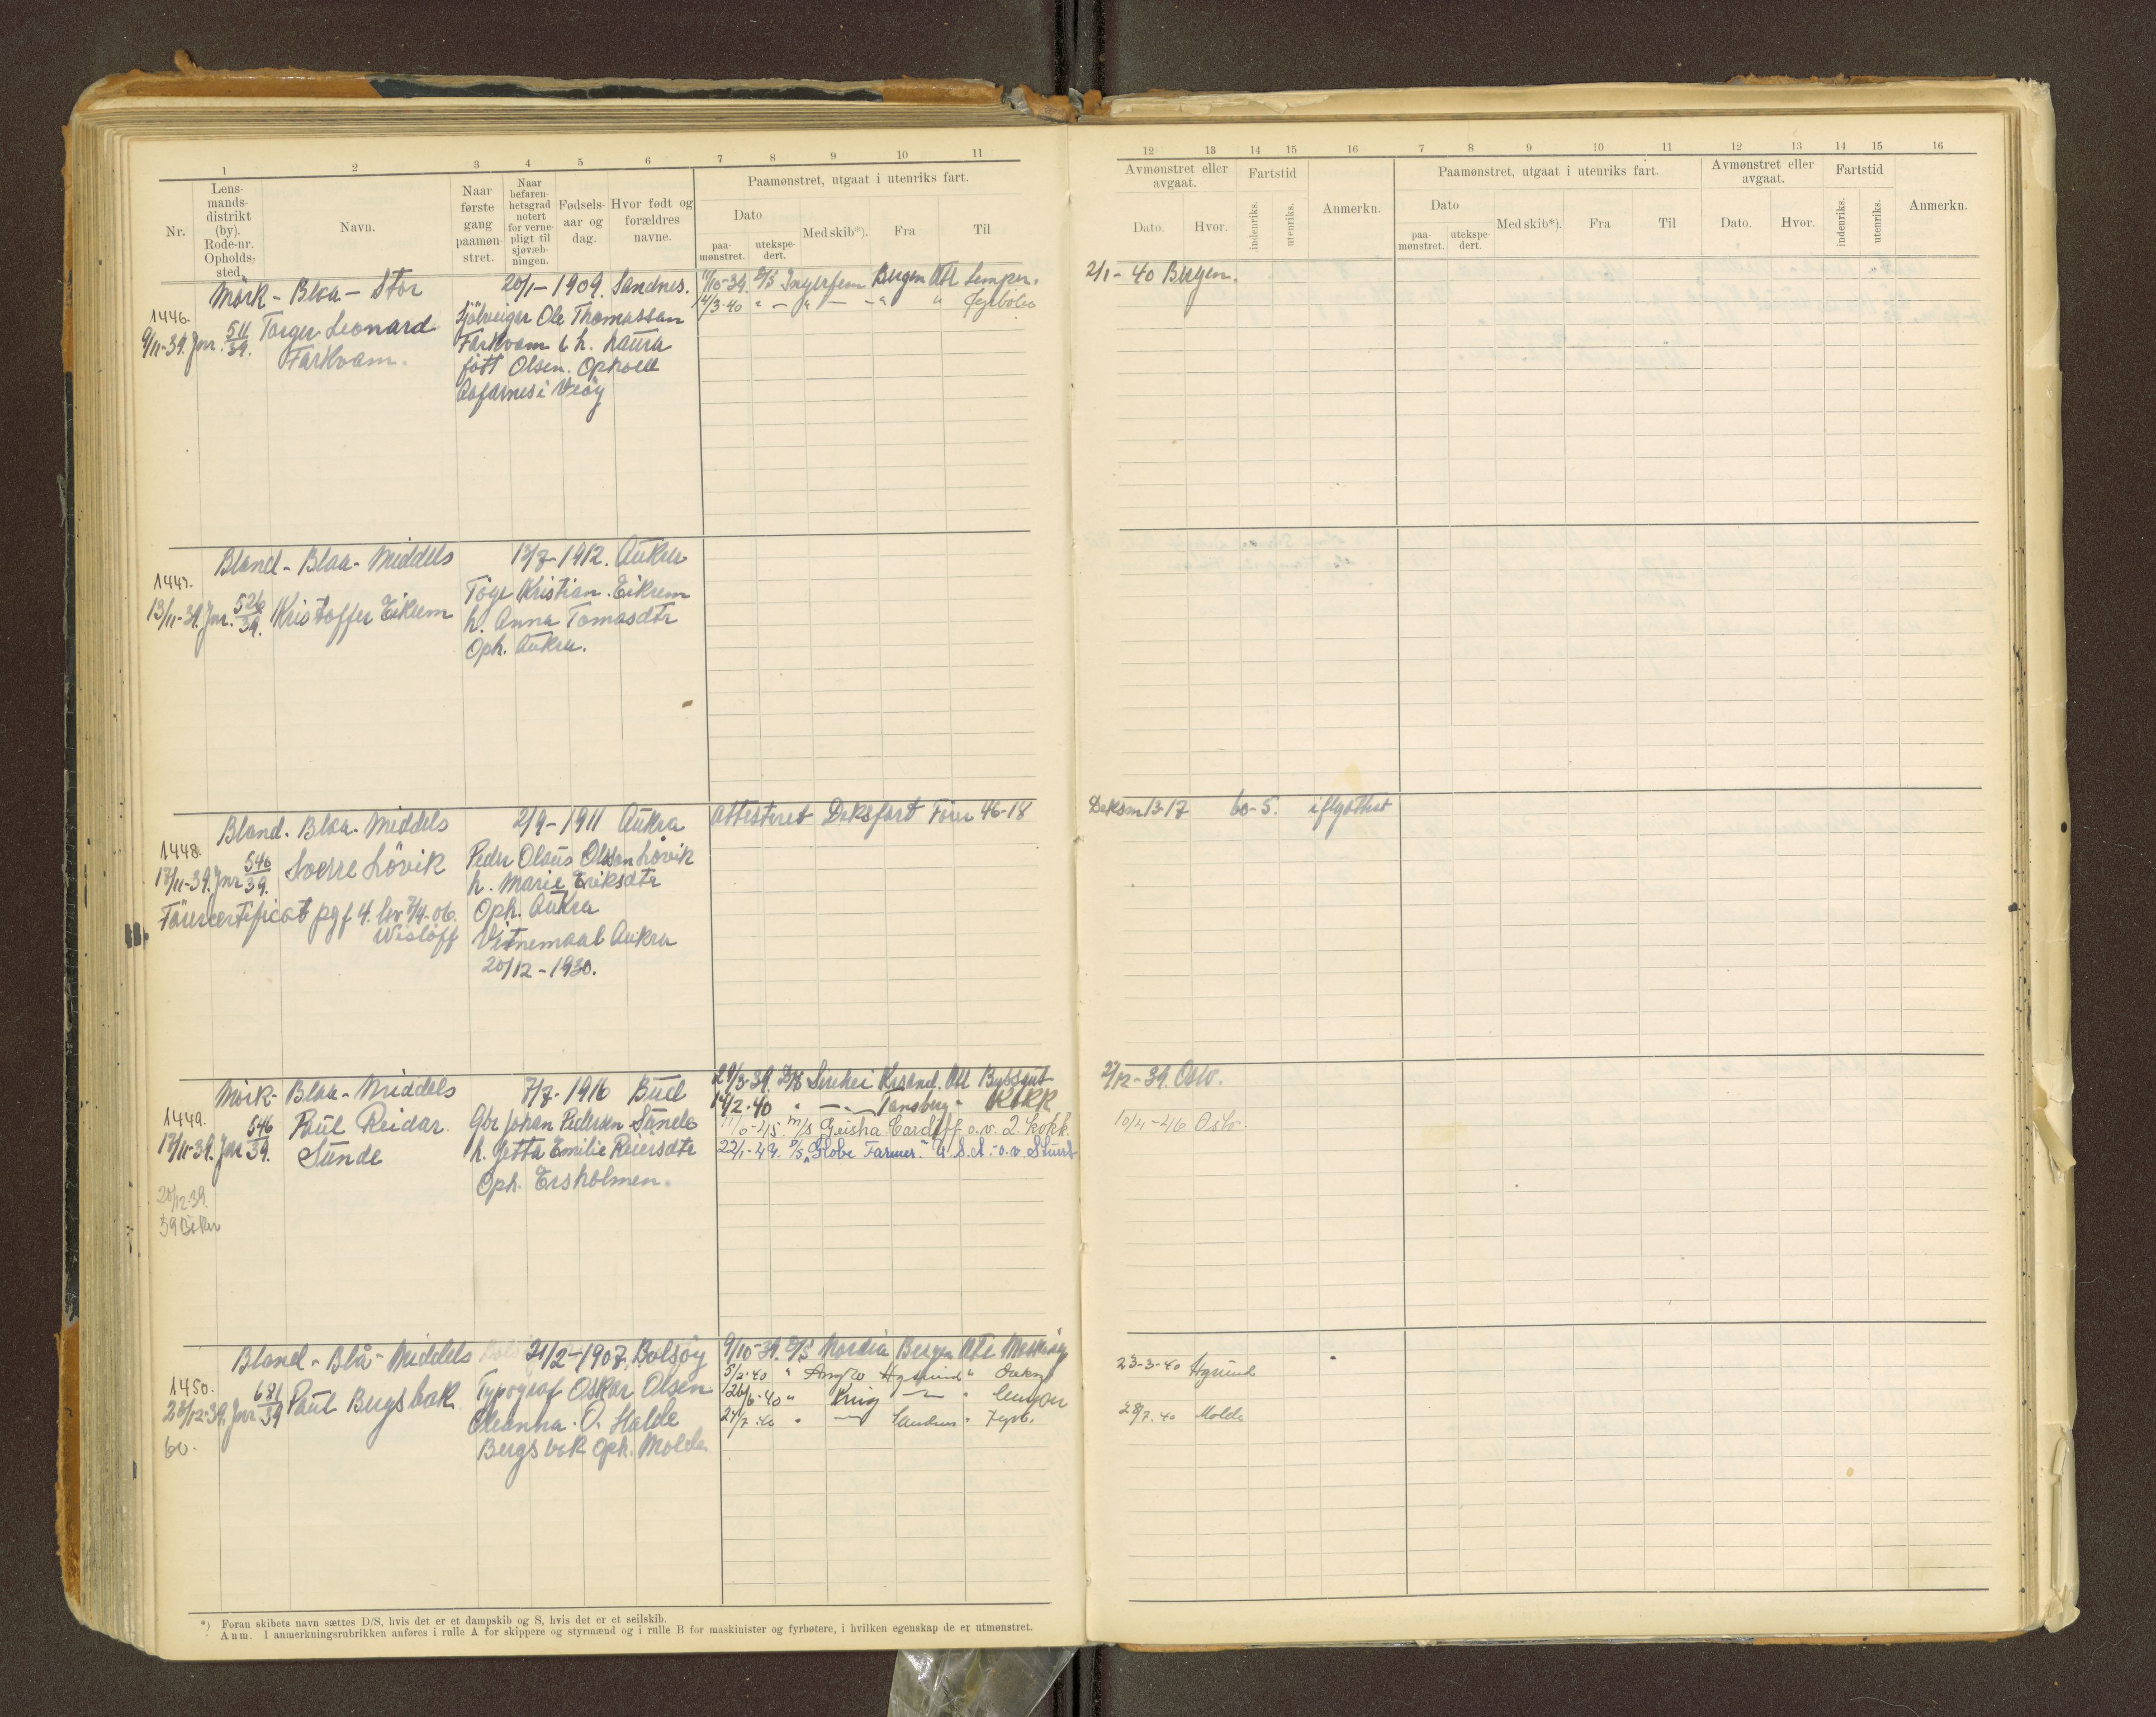 1 2 3 4 5 6 7 8 9 10 11
Nr.
Lens-
mands-
distrikt
(by).
Rode-nr.
Opholds-
sted.
Navn.
Naar
første
gang
paamøn-
stret.
Naar
befaren-
hetsgrad
notert
for verne-
pligt til
sjøvæb-
ningen.
Fødsels-
aar og
dag.
Hvor født og
forældres
navne.
Paamønstret, utgaat i utenriks fart.
Dato
paa-
mønstret.
utekspe-
dert.
Med skib*).
Fra
Til
12 13 14 15 16 7 8 9 10 11 12 13 14 15 16
Avmønstret eller
avgaat.
Dato.
Hvor.
Fartstid
indenriks.
utenriks.
Anmerkn.
Paamønstret, utgaat i utenriks fart.
Dato
paa-
mønstret.
utekspe-
dert.
Med skib*).
Fra
Til
Avmønstret eller
avgaat.
Dato.
Hvor.
Fartstid
indenriks.
utenriks.
Anmerkn.
1446.
9/11-39. Jnr. 511/39.
Mörk - Blaa - Stor
Torger Leonard
Farkvam.
20/1-1909. Sandnes.
Sjölveiger Ole Thomassan
Farkvam & h. Laura
fött Olsen. Ophold
i Veöy
11/10-39. D/S Ingerfem Bergen Utl Lemper.
14/3-40 " - " - " " Fyrböter
2/1-40 Bergen.
1447.
13/11-39. Jnr. 526/39.
Bland - Blaa - Middels
Kristoffer Eikrem
1912. Aukra
Kristian Eikrem
h. Anna Tomasdtr
Oph. Aukra.
1448.
17/11-39. Jnr 546/39.
Bland. Blaa. Middels
Sverre Lövik
Förercertificat pgf 4. lov 7/4-06.
Wislöff
2/9-1911 Aukra
Peder Olaus Olssen Lövik
h. Marie Eriksdtr
Oph. Aukra
Vitnemaal Aukra
20/12-1930.
Attesteret Deksfart Förer 46-18
Deksm 13-17 60-5.
1449.
17/11-39. Jnr 546/39.
20/12 39.
Mörk - Blaa - Middels
Paul Reidar
Sunde
7/7-1916 Bud
Gbr Johan Pedersen Sunde
h. Jetta Emilie Reiersdtr
Oph.
29/3-39. D/S Sirehei Krsand. Utl Byssgut
14/2-40 " - " - Tønsberg " Kokk
11/6-45 m/s Geisha Cardiff o.v. 2. kokk.
22/1-49. D/S "Globe Farmer" U.S.A. - o.v. Stuert
27/12-39. Oslo.
10/4-46 Oslo.
1450.
28/12-39. Jnr. 681/39
60.
Bland - Blå - Middels
Paul Bergsbak
21/2-1907. Bolsøy
Typograf Oskar Olsen
Oleanna O. Halde
Bergsbak Oph. Molde.
9/10-39. D/S Nordia Bergen Utl
5/2-40 " Hgsund "
26/6-40 " Krig " Lemper
27/7-40 " - Sandnes " Fyrb.
23-3-40 Hgsund
28/7.40 Molde
*) Foran skibets navn sættes D/S, hvis det er et dampskib og S, hvis det er et seilskib.
Anm. I anmerkningsrubrikken anføres i rulle A for skippere og styrmænd og i rulle B for maskinister og fyrbøtere, i hvilken egenskap de er utmønstret.